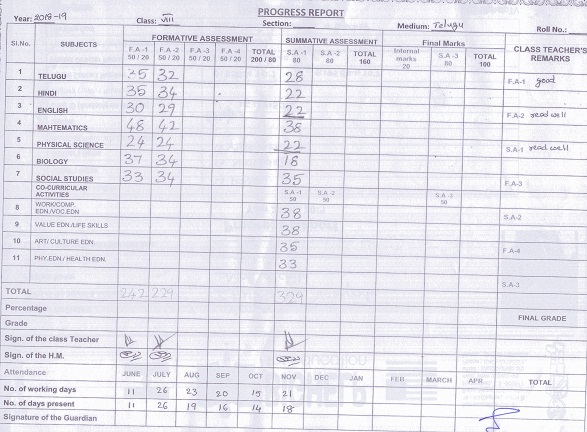 PROGRESS REPORT
Year: 2018-19 Class: VIII Section: Medium: Telugu Roll No.:
Sl.No. SUBJECTS FORMATIVE ASSESSMENT SUMMATIVE ASSESSMENT Final Marks CLASS TEACHER'S REMARKS
F.A-1 50 / 20 F.A-2 50 / 20 F.A-3 50 / 20 F.A-4 50 / 20 TOTAL 200 / 80 S.A-1 80 S.A-2 80 TOTAL 160 Internal marks 20 S.A-3 80 TOTAL 100
1 TELUGU 25 32 28 F.A-1 good
2 HINDI 35 34 22
3 ENGLISH 30 29 22 F.A-2 read well
4 MAHTEMATICS 48 42 38
5 PHYSICAL SCIENCE 24 24 22 S.A-1 read well
6 BIOLOGY 37 34 18
7 SOCIAL STUDIES 33 34 35 F.A-3
CO-CURRICULAR ACTIVITIES S.A-1 50 S.A-2 50 S.A-3 50
8 WORK/COMP. EDN./VOC.EDN 38 S.A-2
9 VALUE EDN./LIFE SKILLS 38
10 ART/ CULTURE EDN. 35 F.A-4
11 PHY.EDN / HEALTH EDN. 33
S.A-3
TOTAL 242 229 329
Percentage FINAL GRADE
Grade
Sign. of the class Teacher
Sign. of the H.M.
Attendance JUNE JULY AUG SEP OCT NOV DEC JAN FEB MARCH APR TOTAL
No. of working days 11 26 23 20 15 21
No. of days present 11 26 19 16 14 18
Signature of the Guardian